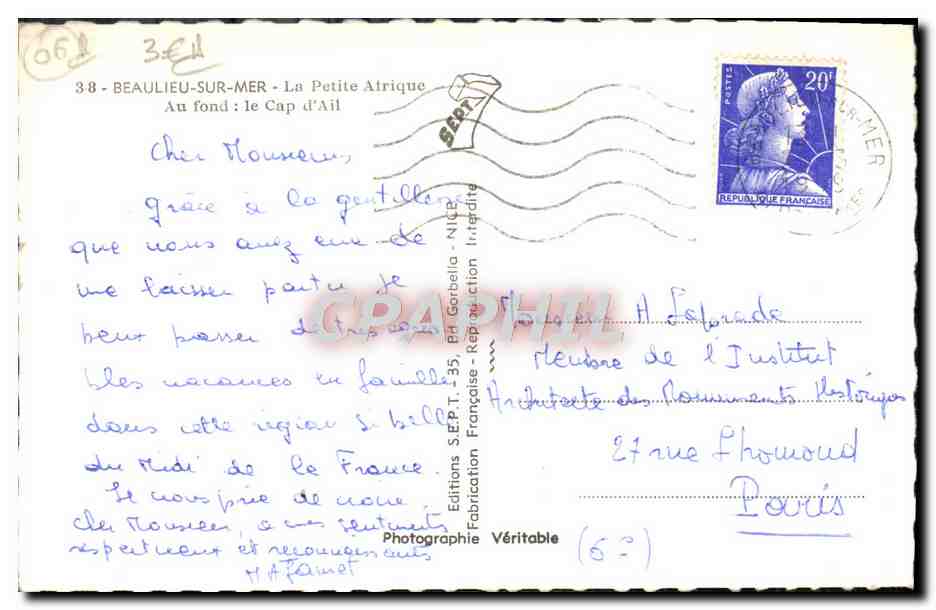 06
3€
38 - BEAULIEU-SUR-MER - La Petite Afrique
Au fond : le Cap d'Ail
SEPT
POSTES
20F
REPUBLIQUE FRANÇAISE
SUR-MER
Cher Monsieur,
grâce à la gentillesse
que vous avez eue de
me laisser partir je
peux passer de très
bles vacances en famille
dans cette région si belle
du Midi de la France.
Je vous prie de
cher Monsieur, a mes sentiments
respectueux et reconnaissants
Editions S.E.P.T. - 35, Bd Gorbella - NICE
Fabrication Française - Reproduction Interdite
Photographie Véritable
CPAPHIL
Monsieur A Laprade
Membre de l'Institut
Architecte des Monuments Historiques
27 rue Lhomond
Paris